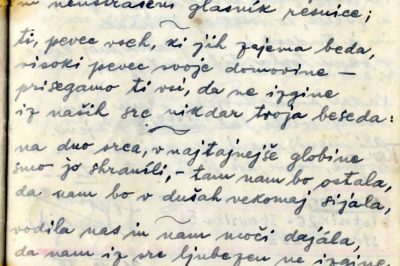 in neustrašeni glasnik resnice;
ti, pevec vseh, ki jih zajema beda,
visoki pevec svoje domovine –
prisegamo ti vsi, da ne izgine
iz naših src nikdar tvoja beseda:
na dno srca, v najtajnejše globine
smo jo shranili, – tam nam bo ostala,
da nam bo v dušah vekomaj sijala,
vodila nas in nam moči dajála,
da nam iz src ljubezen ne izgine